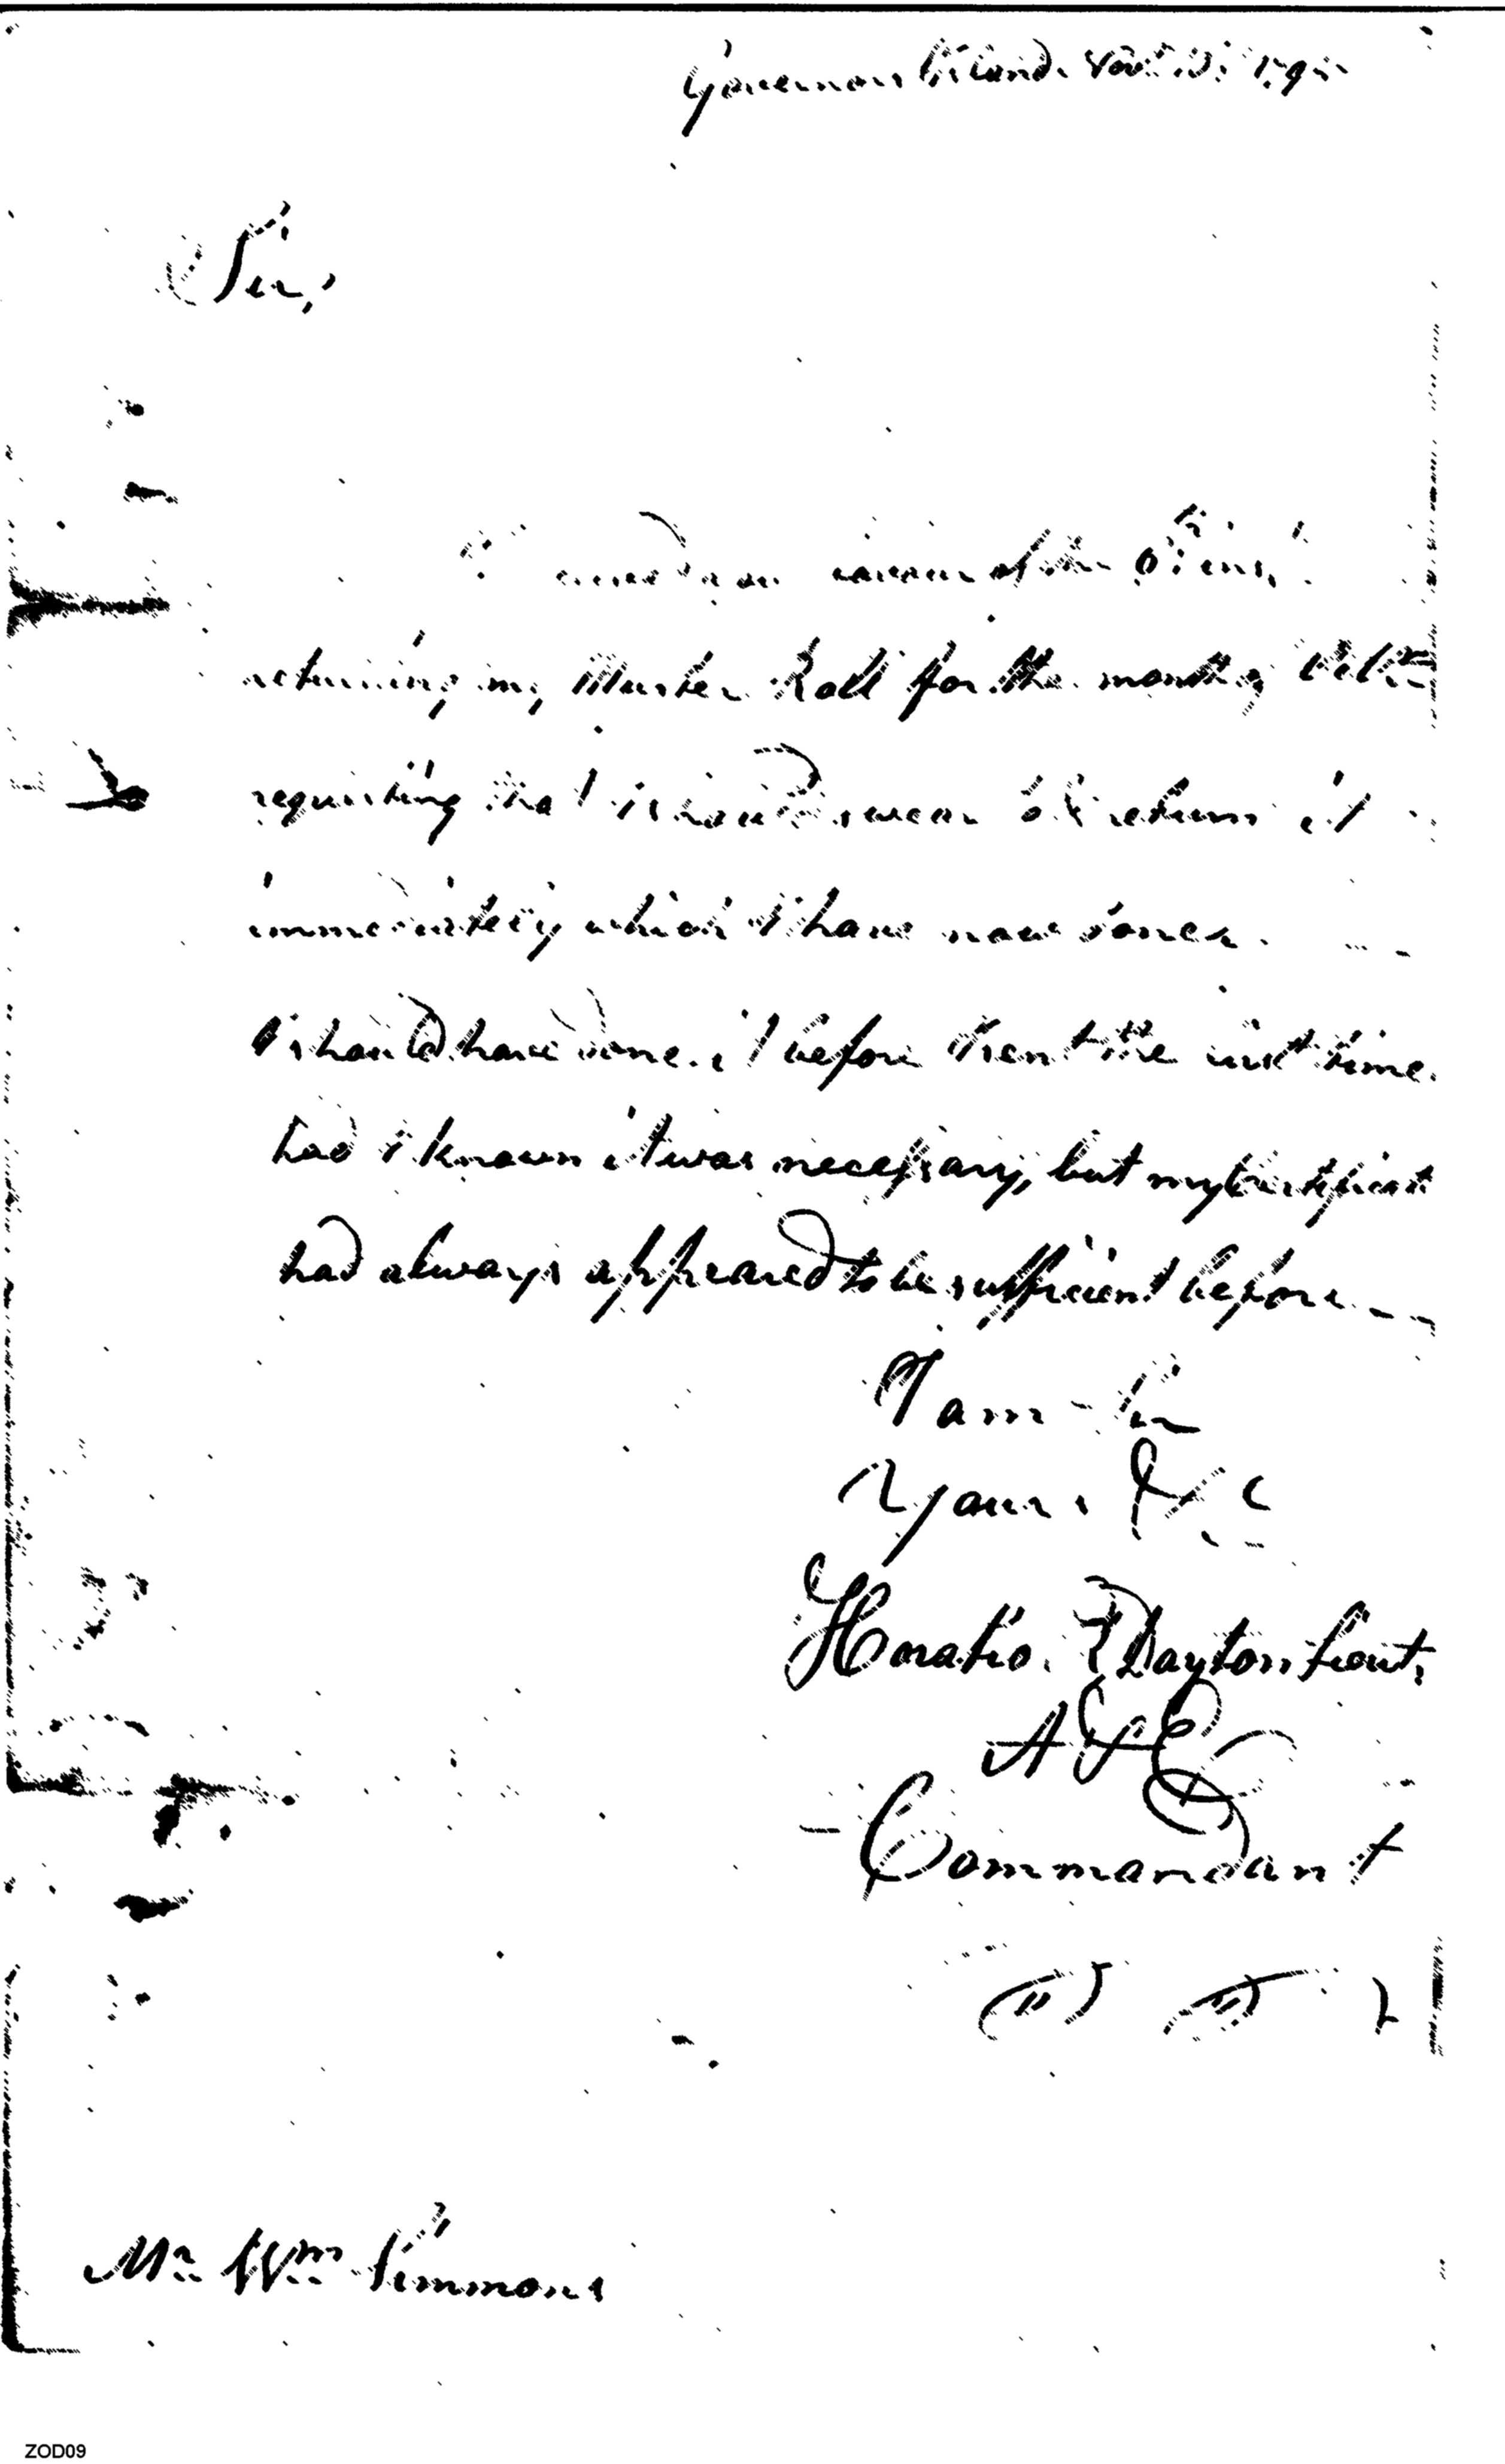 Governors Island. Novr. 179
Sir,
I received your favour of the 6th inst,
returning my Muster Roll for the month of Octr.
requesting that I should swear to & return it
immediately which I have now done.
I should have done it before I sent the last time
had I known it was necessary, but my Certificate
had always appeared to be sufficient before
I am Sir
Yours &c
Horatio R Dayton Lieut.
A & E
Commandant
Mr. Wm. Simmons
ZOD09